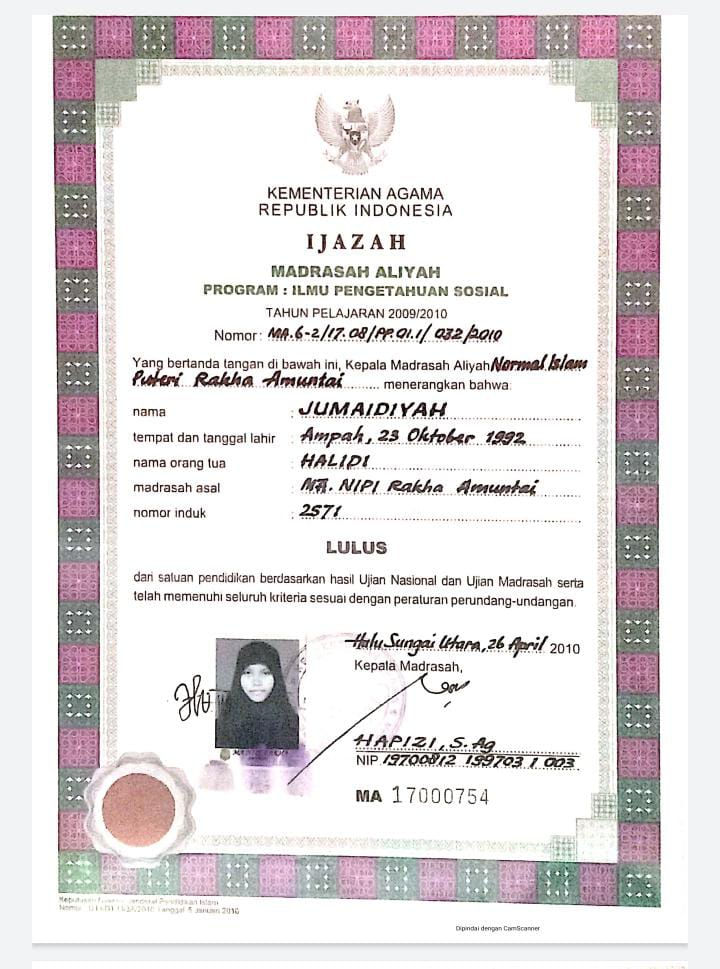 KEMENTERIAN AGAMA
REPUBLIK INDONESIA
IJAZAH
MADRASAH ALIYAH
PROGRAM : ILMU PENGETAHUAN SOSIAL
TAHUN PELAJARAN 2009/2010
Nomor : MA.6-2/17.08/PP.01.1/ 032/2010
Yang bertanda tangan di bawah ini, Kepala Madrasah Aliyah Normal Islam
Puteri Rakha Amuntai ........... menerangkan bahwa:
nama : JUMAIDIYAH
tempat dan tanggal lahir : Ampah, 23 Oktober 1992
nama orang tua : HALIDI
madrasah asal : MA. NIPI Rakha Amuntai
nomor induk : 2571
LULUS
dari satuan pendidikan berdasarkan hasil Ujian Nasional dan Ujian Madrasah serta
telah memenuhi seluruh kriteria sesuai dengan peraturan perundang-undangan.
Hulu Sungai Utara, 26 April 2010
Kepala Madrasah,
HAPIZI, S.Ag
NIP 19700812 199703 1 003
MA 17000754
Keputusan Jenderal Pendidikan Islam
Nomor : Tanggal 5 Januari 2010
Dipindai dengan CamScanner